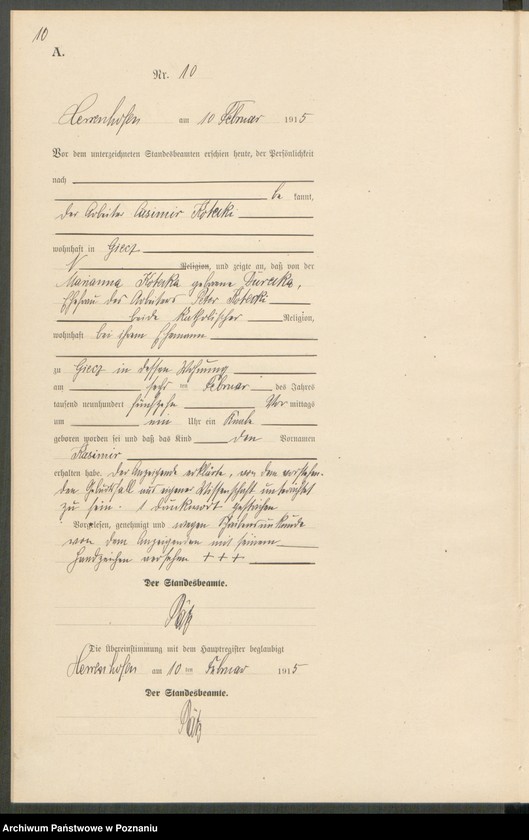 10
A.
Nr. 10
Herrenhofen am 10 Februar 1915
Vor dem unterzeichneten Standesbeamten erschien heute, der Persönlichkeit
nach
be kannt,
der Arbeiter Casimir Koterki
wohnhaft in Giecz
Religion, und zeigte an, daß von der
Marianna Koterka geborene
Ehefrau des Arbeiters Peter Koterki
beide katholischer Religion,
wohnhaft bei ihrem Ehemann
zu Giecz in dessen Wohnung
am sechs ten Februar des Jahres
tausend neunhundert fünfzehn Vor mittags
um ein Uhr ein Knabe
geboren worden sei und daß das Kind den Vornamen
Kasimir
erhalten habe. Der Anzeigende erklärte, von dem vorstehen-
den Geburtsfall aus eigener Wissenschaft unterrichtet
zu sein. 1 Druckwort gestrichen
Vorgelesen, genehmigt und wegen Schreibensunkunde
von dem Anzeigenden mit seinem
Handzeichen versehen +++
Der Standesbeamte.
Die Übereinstimmung mit dem Hauptregister beglaubigt
Herrenhofen am 10 ten Februar 1915
Der Standesbeamte.
Archiwum Państwowe w Poznaniu